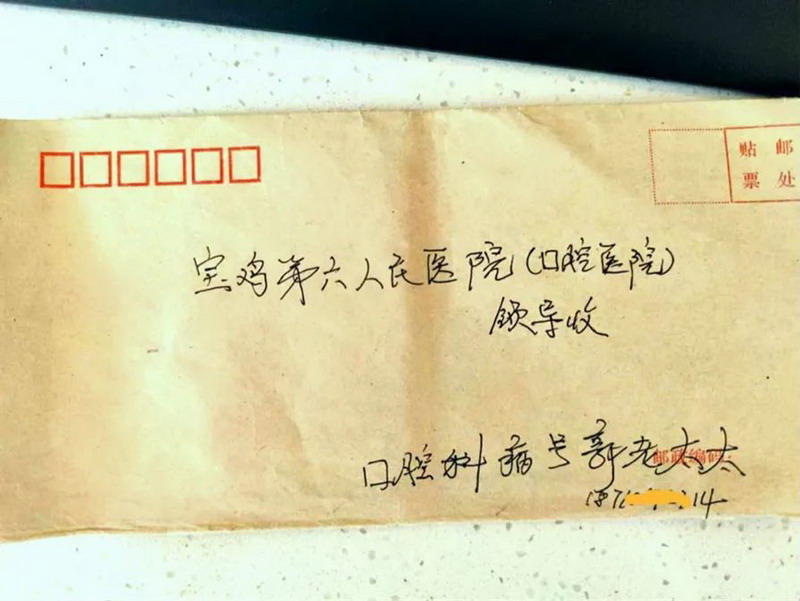 贴 邮
票 处
宝鸡第六人民医院(口腔医院)
领导收
口腔科病号郭老太太
邮政编码:
14